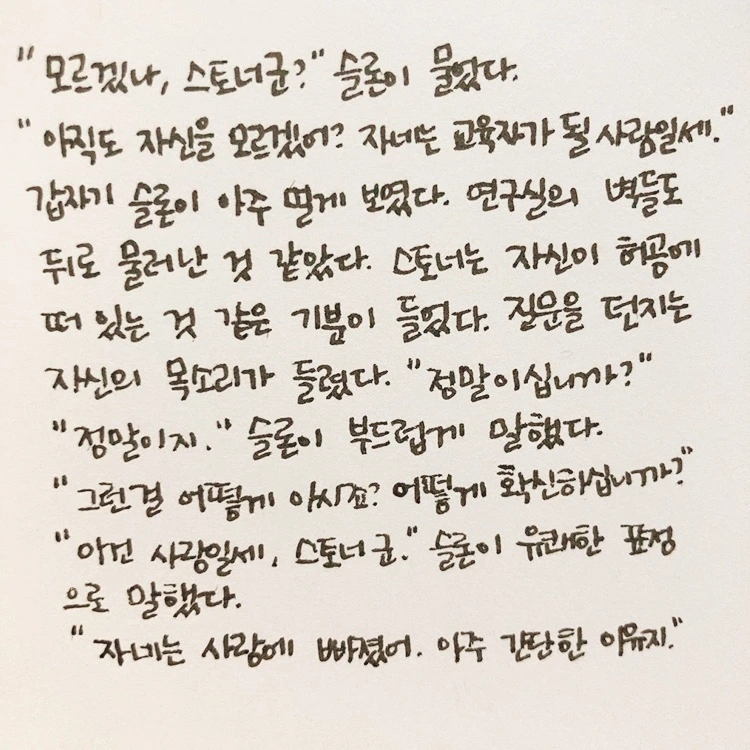 "모르겠나, 스토너군?" 슬론이 물었다.
"아직도 자신을 모르겠어? 자네는 교육자가 될 사람일세."
갑자기 슬론이 아주 멀게 보였다. 연구실의 벽들도
뒤로 물러난 것 같았다. 스토너는 자신이 허공에
떠 있는 것 같은 기분이 들었다. 질문을 던지는
자신의 목소리가 들렸다. "정말이십니까?"
"정말이지." 슬론이 부드럽게 말했다.
"그런걸 어떻게 아시죠? 어떻게 확신하십니까?"
"이건 사랑일세, 스토너 군." 슬론이 유쾌한 표정
으로 말했다.
"자네는 사랑에 빠졌어. 아주 간단한 이유지."